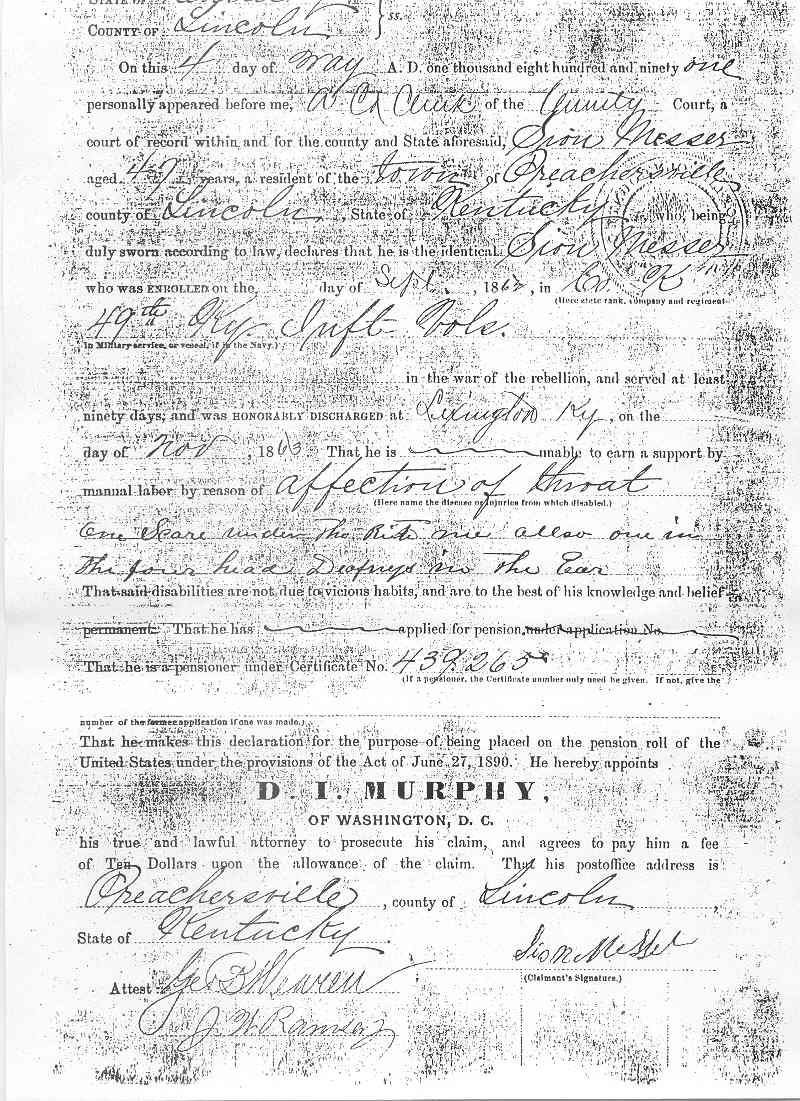 STATE OF
COUNTY OF Lincoln } ss.
On this 4 day of May A. D. one thousand eight hundred and ninety one
personally appeared before me, a Clerk of the County Court, a
court of record within and for the county and State aforesaid, Sion Messer
aged 47 years, a resident of the town of Preachersville
county of Lincoln, State of Kentucky, who, being
duly sworn according to law, declares that he is the identical Sion Messer
who was ENROLLED on the day of Sept., 1862, in Co. K
(Here state rank, company and regiment
49th Ky Inft Vols.
in Military service, or vessel, if in the Navy.)
in the war of the rebellion, and served at least
ninety days, and was HONORABLY DISCHARGED at Lexington Ky, on the
day of Nov, 1863 That he is unable to earn a support by
manual labor by reason of affection of throat
(Here name the disease or injuries from which disabled.)
One Scare under the Rite allso one in
the four head Deafnys in the Ear
That said disabilities are not due to vicious habits, and are to the best of his knowledge and belief
permanent. That he has applied for pension under application No.
That he is a pensioner under Certificate No. 439,265
(If a pensioner, the Certificate number only need be given. If not, give the
number of the former application if one was made.)
That he makes this declaration for the purpose of being placed on the pension roll of the
United States under the provisions of the Act of June 27, 1890. He hereby appoints
D. I. MURPHY,
OF WASHINGTON, D. C.
his true and lawful attorney to prosecute his claim, and agrees to pay him a fee
of Ten Dollars upon the allowance of the claim. That his postoffice address is
Preachersville, county of Lincoln,
State of Kentucky.
Sion Messer
(Claimant's Signature.)
Attest Geo B Wearen
J. W. Ramsey